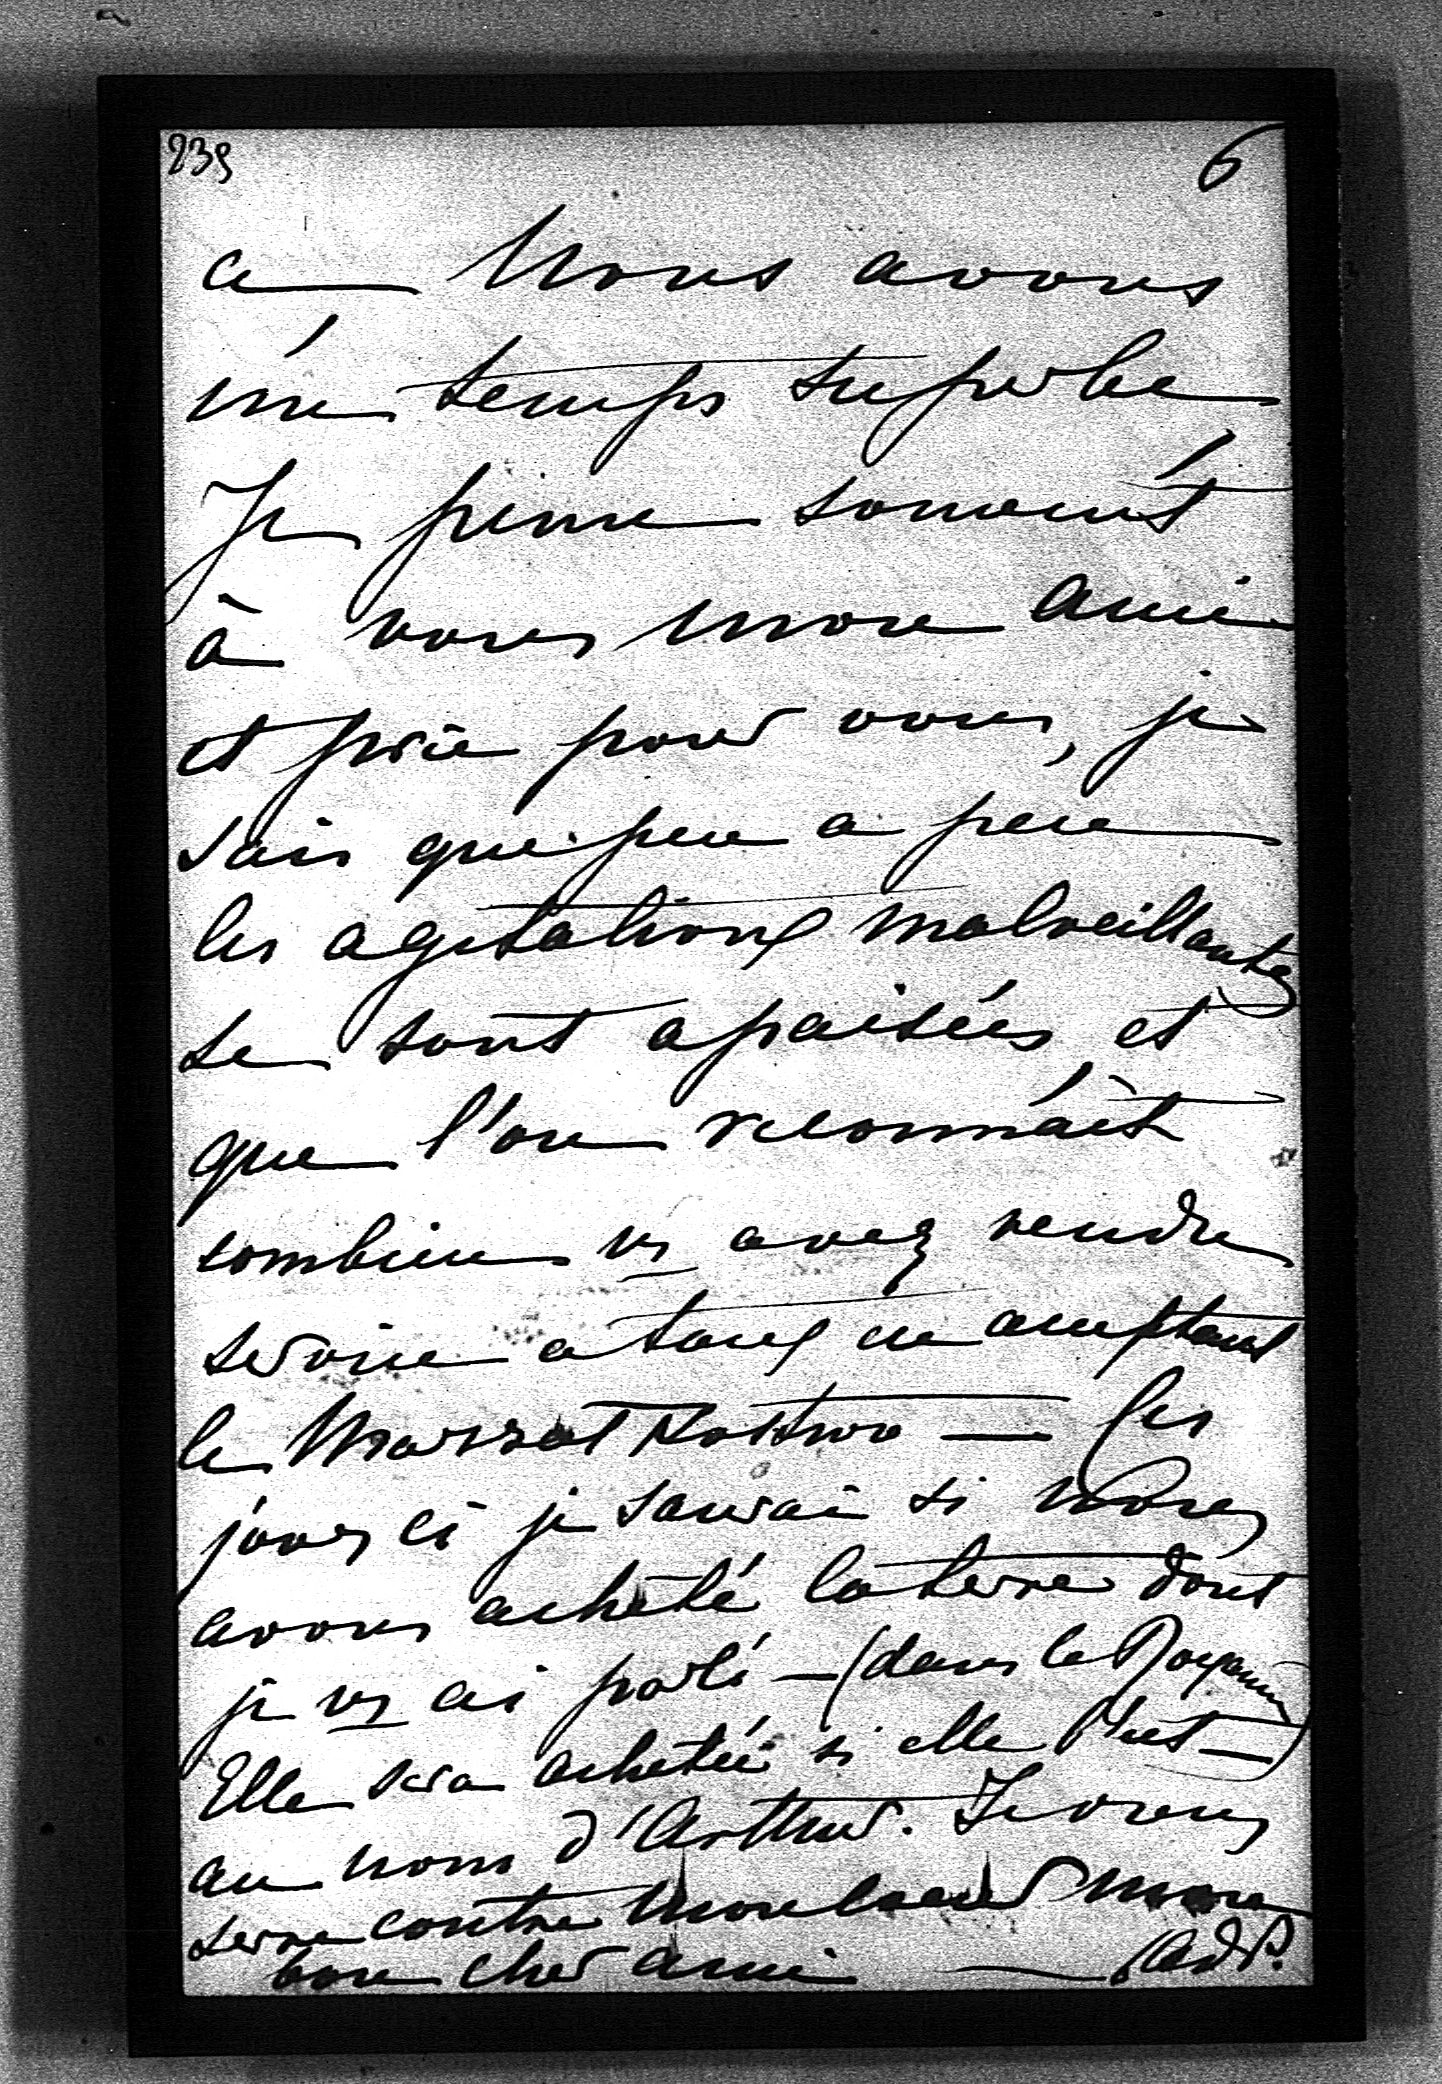 239 6
ce — Nous avons
un temps superbe
Je pense souvent
à vous mon ami
et prie pour vous, je
sais que peu a peu
les agitations malveillantes
se sont apaisées, et
que l'on reconnait
combien vs avez rendu
service a tous en acceptant
le —
jours ci je saurai si nous
avons acheté la terre dont
je vs ai parlé — (dans le Royaume)
Elle sera achetée si elle l'est —
au nom d'Arthur. Je vous
serre contre mon cœur mon
bon cher ami — AdP.